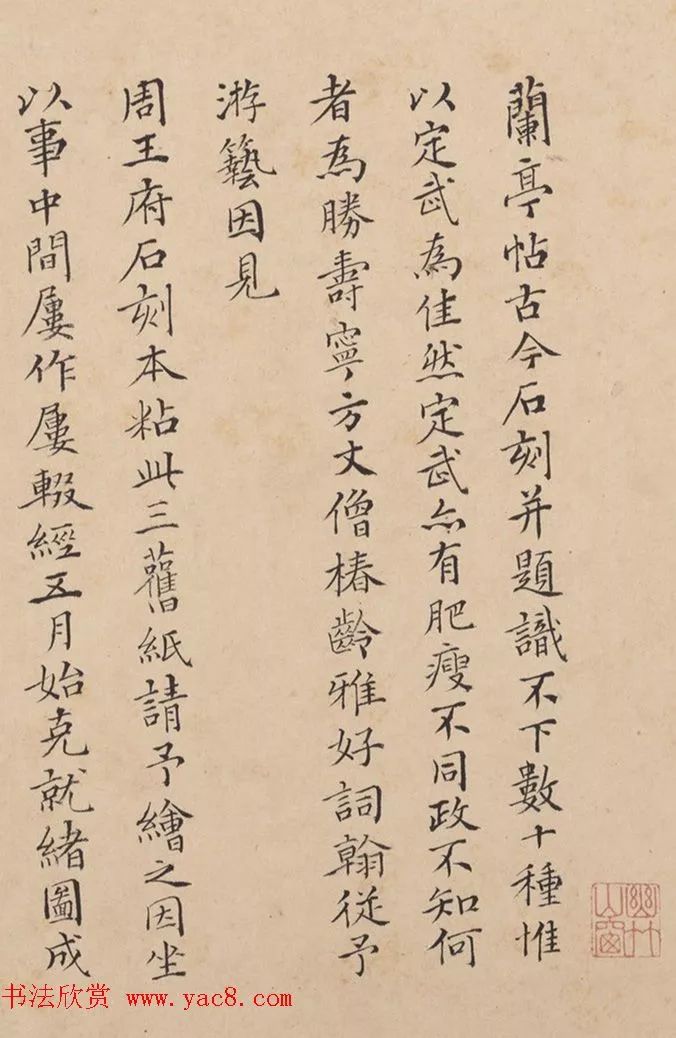 蘭亭帖古今石刻并題識不下數十種惟
以定武為佳然定武亦有肥瘦不同政不知何
者為勝壽寧方丈僧椿齡雅好詞翰從予
游藝因見
周王府石刻本粘此三舊紙請予繪之因坐
以事中間屢作屢輟經五月始克就緒圖成
書法欣赏 www.yac8.com